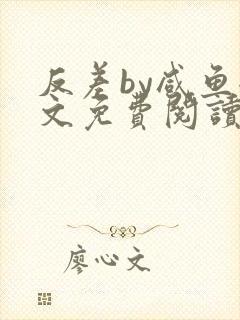 反差by咸鱼
文免费閱讀
廖心文